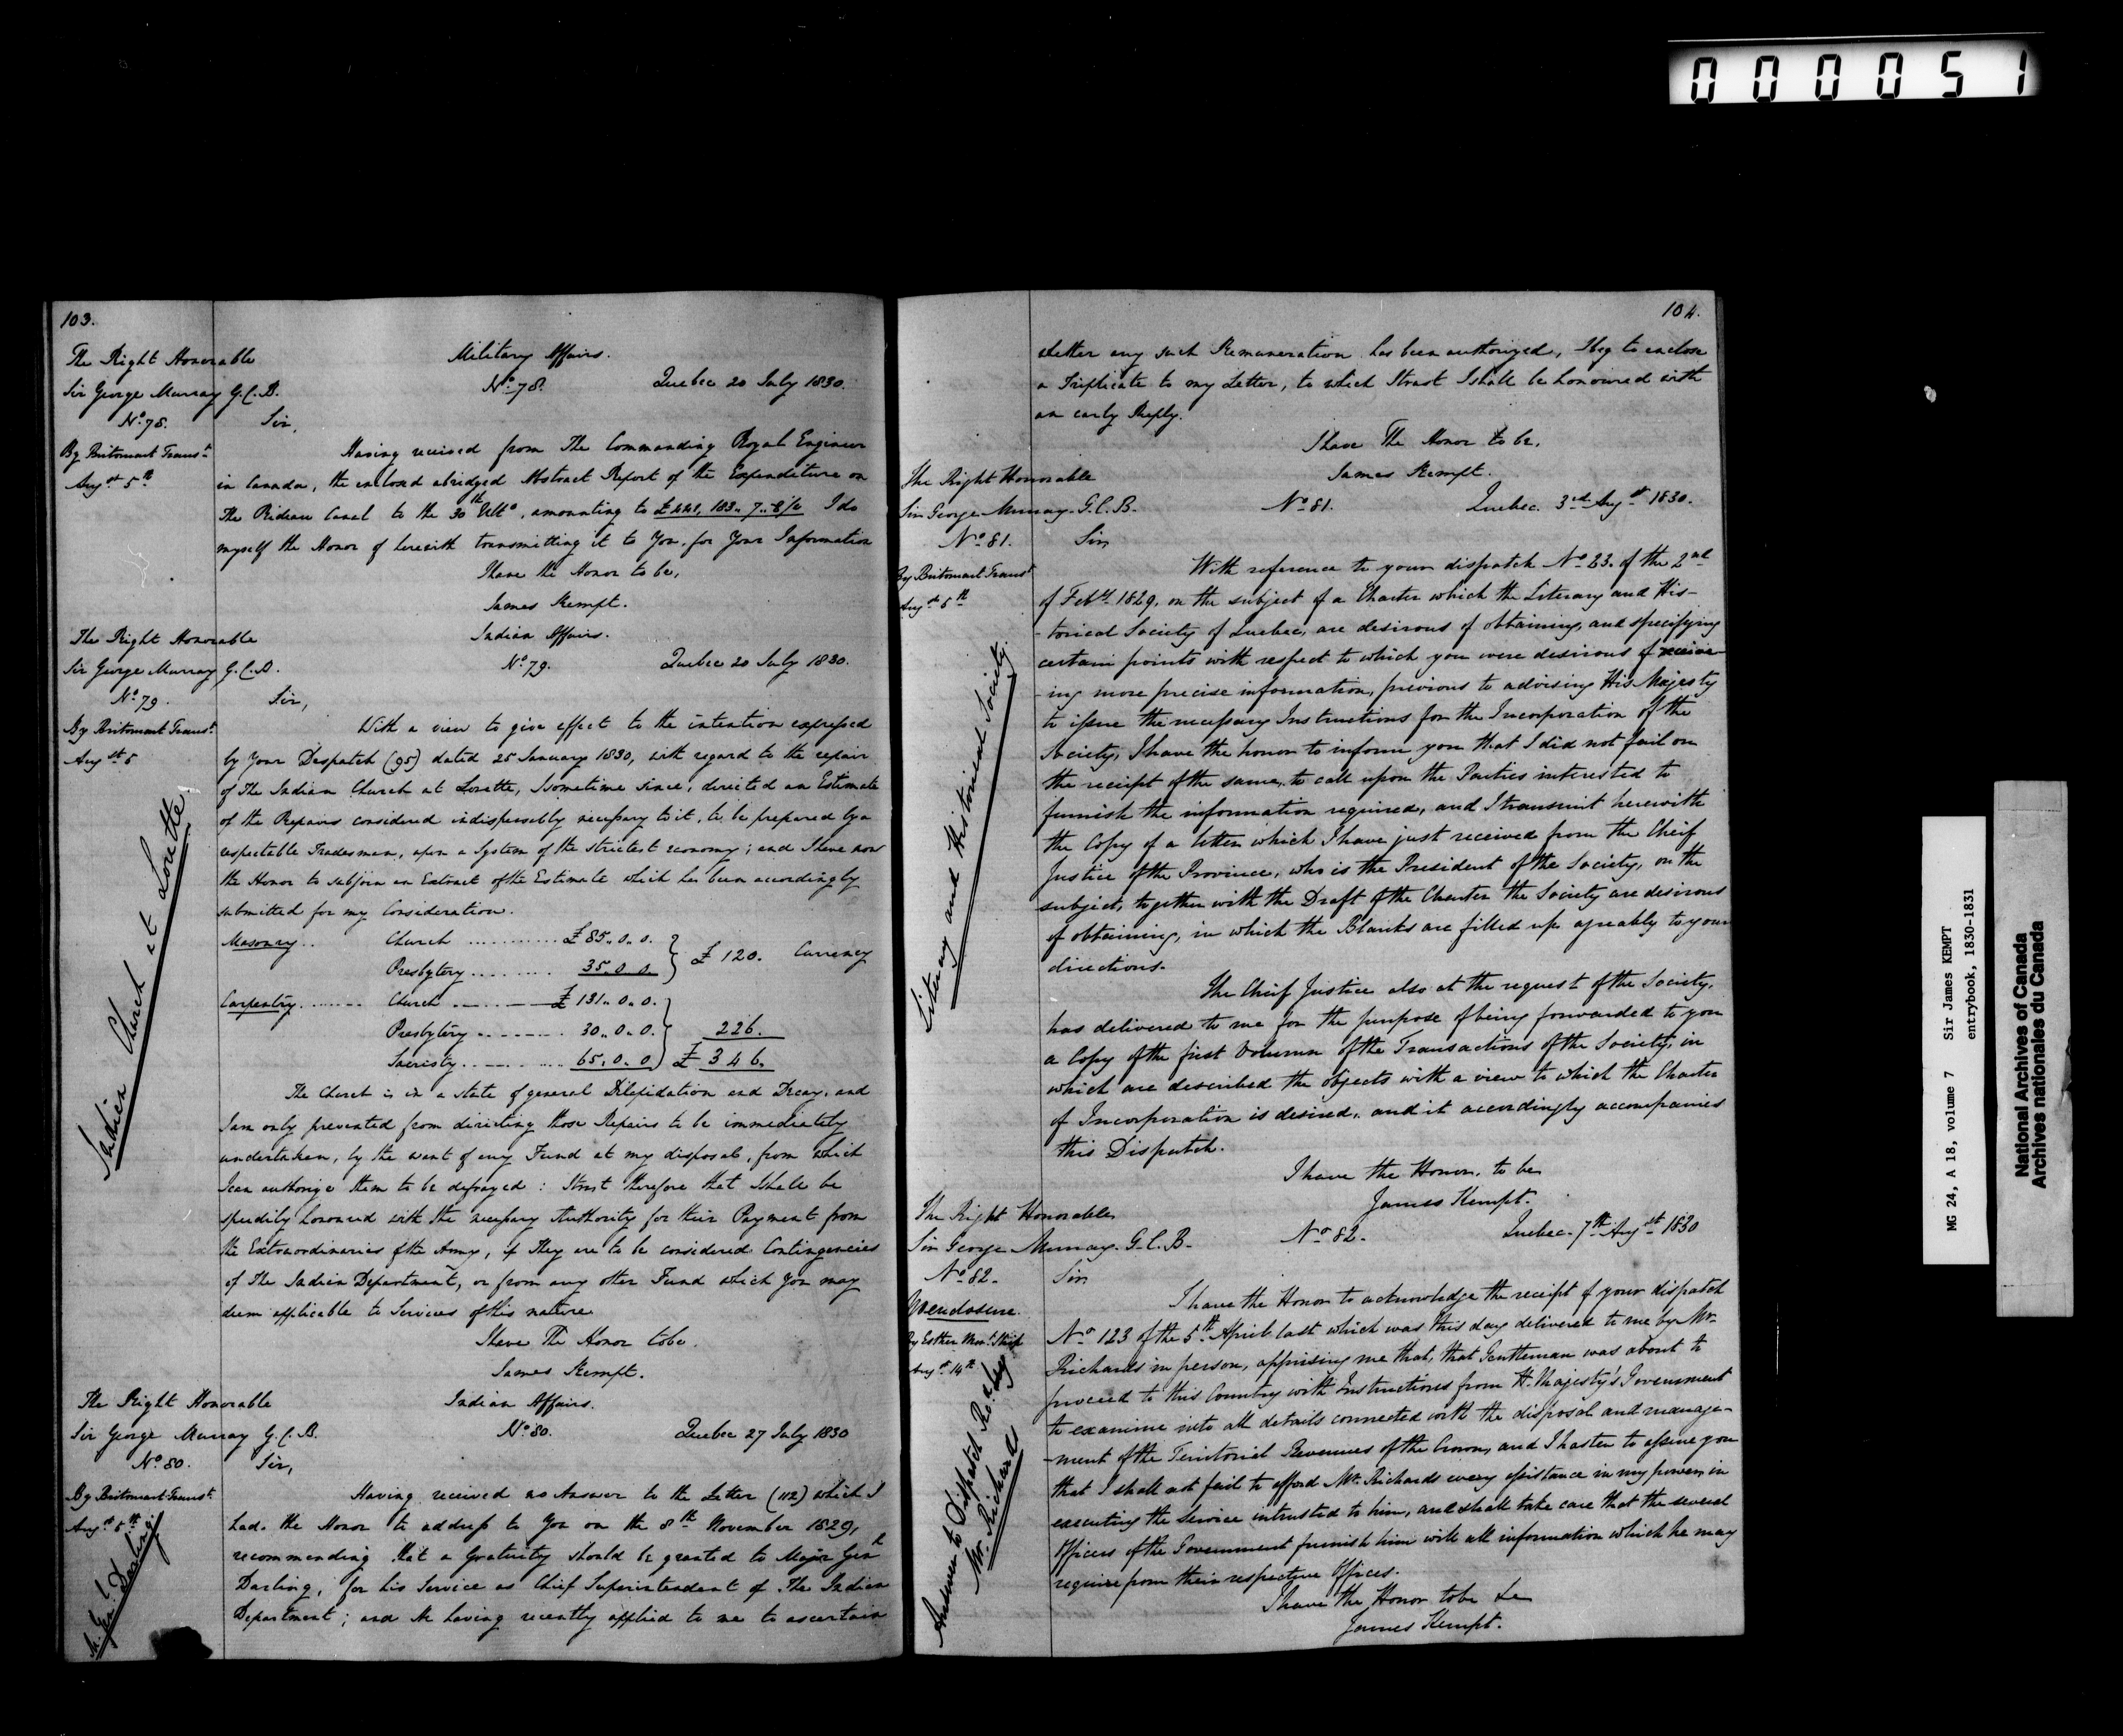 000051
103.
The Right Honorable
Sir George Murray G.C.B.
No. 78.
By Britomart Transt.
Augst 5th
Military Affairs.
No. 78. Quebec 20 July 1830.
Sir,
Having received from The Commanding Royal Engineer
in Canada, the enclosed abridged Abstract Report of the Expenditure on
The Rideau Canal to the 30th Ulto, amounting to I do
myself the Honor of herewith transmitting it to You, for Your Information
I have the Honor to be,
James Kempt.
The Right Honorable
Sir George Murray G.C.B.
No. 79.
By Britomart Transt.
Augst 5
Indian Church at Lorette.
Indian Affairs.
No. 79. Quebec 20 July 1830.
Sir,
With a view to give effect to the intention expressed
by Your Despatch (95) dated 25 January 1830, with regard to the repair
of The Indian Church at Lorette, I sometime since, directed an Estimate
of the Repairs considered indispensably necessary to it, to be prepared by a
respectable Tradesman, upon a System of the strictest economy; and I have now
the Honor to subjoin an Extract of the Estimate which has been accordingly
submitted for my Consideration.
Masonry.. Church ............ £85..0..0.
Presbytery.......... 35..0..0. } £120. Currency
Carpentry........ Church ........ £131..0..0.
Presbytery......... 30..0..0. } 226.
Sacristy........... 65..0..0. £346.
The Church is in a state of general Dilapidation and Decay, and
I am only prevented from directing those Repairs to be immediately
undertaken, by the want of any Fund at my disposal, from which
I can authorize them to be defrayed: I trust therefore that I shall be
speedily honoured with the necessary Authority for their Payment from
the Extraordinaries of the Army, if They are to be considered Contingencies
of The Indian Department, or from any other Fund which You may
deem applicable to Services of this nature
I have The Honor to be.
James Kempt.
The Right Honorable
Sir George Murray G.C.B.
No. 80.
By Britomart Transt.
Augst 5th
M. Genl. Darling
Indian Affairs.
No. 80. Quebec 27 July 1830
Sir,
Having received no Answer to the Letter (112) which I
had the Honor to address to You on the 8th November 1829,
recommending that a Gratuity should be granted to Major Genl
Darling, for his Service as Chief Superintendent of The Indian
Department; and He having recently applied to me to ascertain
104.
whether any such Remuneration has been authorized, I beg to enclose
a Triplicate to my Letter, to which I trust I shall be honoured with
an early Reply.
I have The Honor to be,
James Kempt.
The Right Honorable
Sir George Murray G.C.B.
No. 81.
By Britomart Transt
Augst 5th
Literary and Historical Society.
No. 81. Quebec 3rd Augst 1830.
Sir
With reference to your dispatch No. 23. of the 2nd
of Feby. 1829, on the subject of a Charter which the Literary and His-
-torical Society of Quebec, are desirous of obtaining, and specifying
certain points with respect to which you were desirous of receiv-
-ing more precise information, previous to advising His Majesty
to issue the necessary Instructions for the Incorporation of the
Society, I have the honor to inform you that I did not fail on
the receipt of the same, to call upon the Parties interested to
furnish the information required, and I transmit herewith
the Copy of a letter which I have just received from the Cheif
Justice of the Province, who is the President of the Society, on the
subject, together with the Draft of the Charter the Society are desirous
of obtaining, in which the Blanks are filled up agreably to your
directions.
The Chief Justice also at the request of the Society,
has delivered to me for the purpose of being forwarded to you
a Copy of the first Volumn of the Transactions of the Society, in
which are described the objects with a view to which the Charter
of Incorporation is desired, and it accordingly accompanies
this Dispatch.
I have the Honor, to be
James Kempt.
The Right Honorable
Sir George Murray. G.C.B.
No. 82.
enclosure.
By Esther Mert. Ship
Augst 14th
Answer to Dispatch Recd. by
Mr. Richards
No. 82. Quebec. 7th Augst 1830
Sir
I have the Honor to acknowledge the receipt of your dispatch
No. 123 of the 5th April last which was this day delivered to me by Mr.
Richards in person, apprising me that, that Gentleman was about to
proceed to this Country with Instructions from H. Majesty's Government
to examine into all details connected with the disposal and manage-
-ment of the Territorial Revenues of the Crown, and I hasten to assure you
that I shall not fail to afford Mr. Richards every assistance in my power in
executing the Service intrusted to him, and shall take care that the several
Officers of the Government furnish him with all information which he may
require from their respective Offices.
I have the Honor to be &c
James Kempt.
MG 24, A 18, volume 7 Sir James KEMPT
entrybook, 1830-1831
National Archives of Canada
Archives nationales du Canada